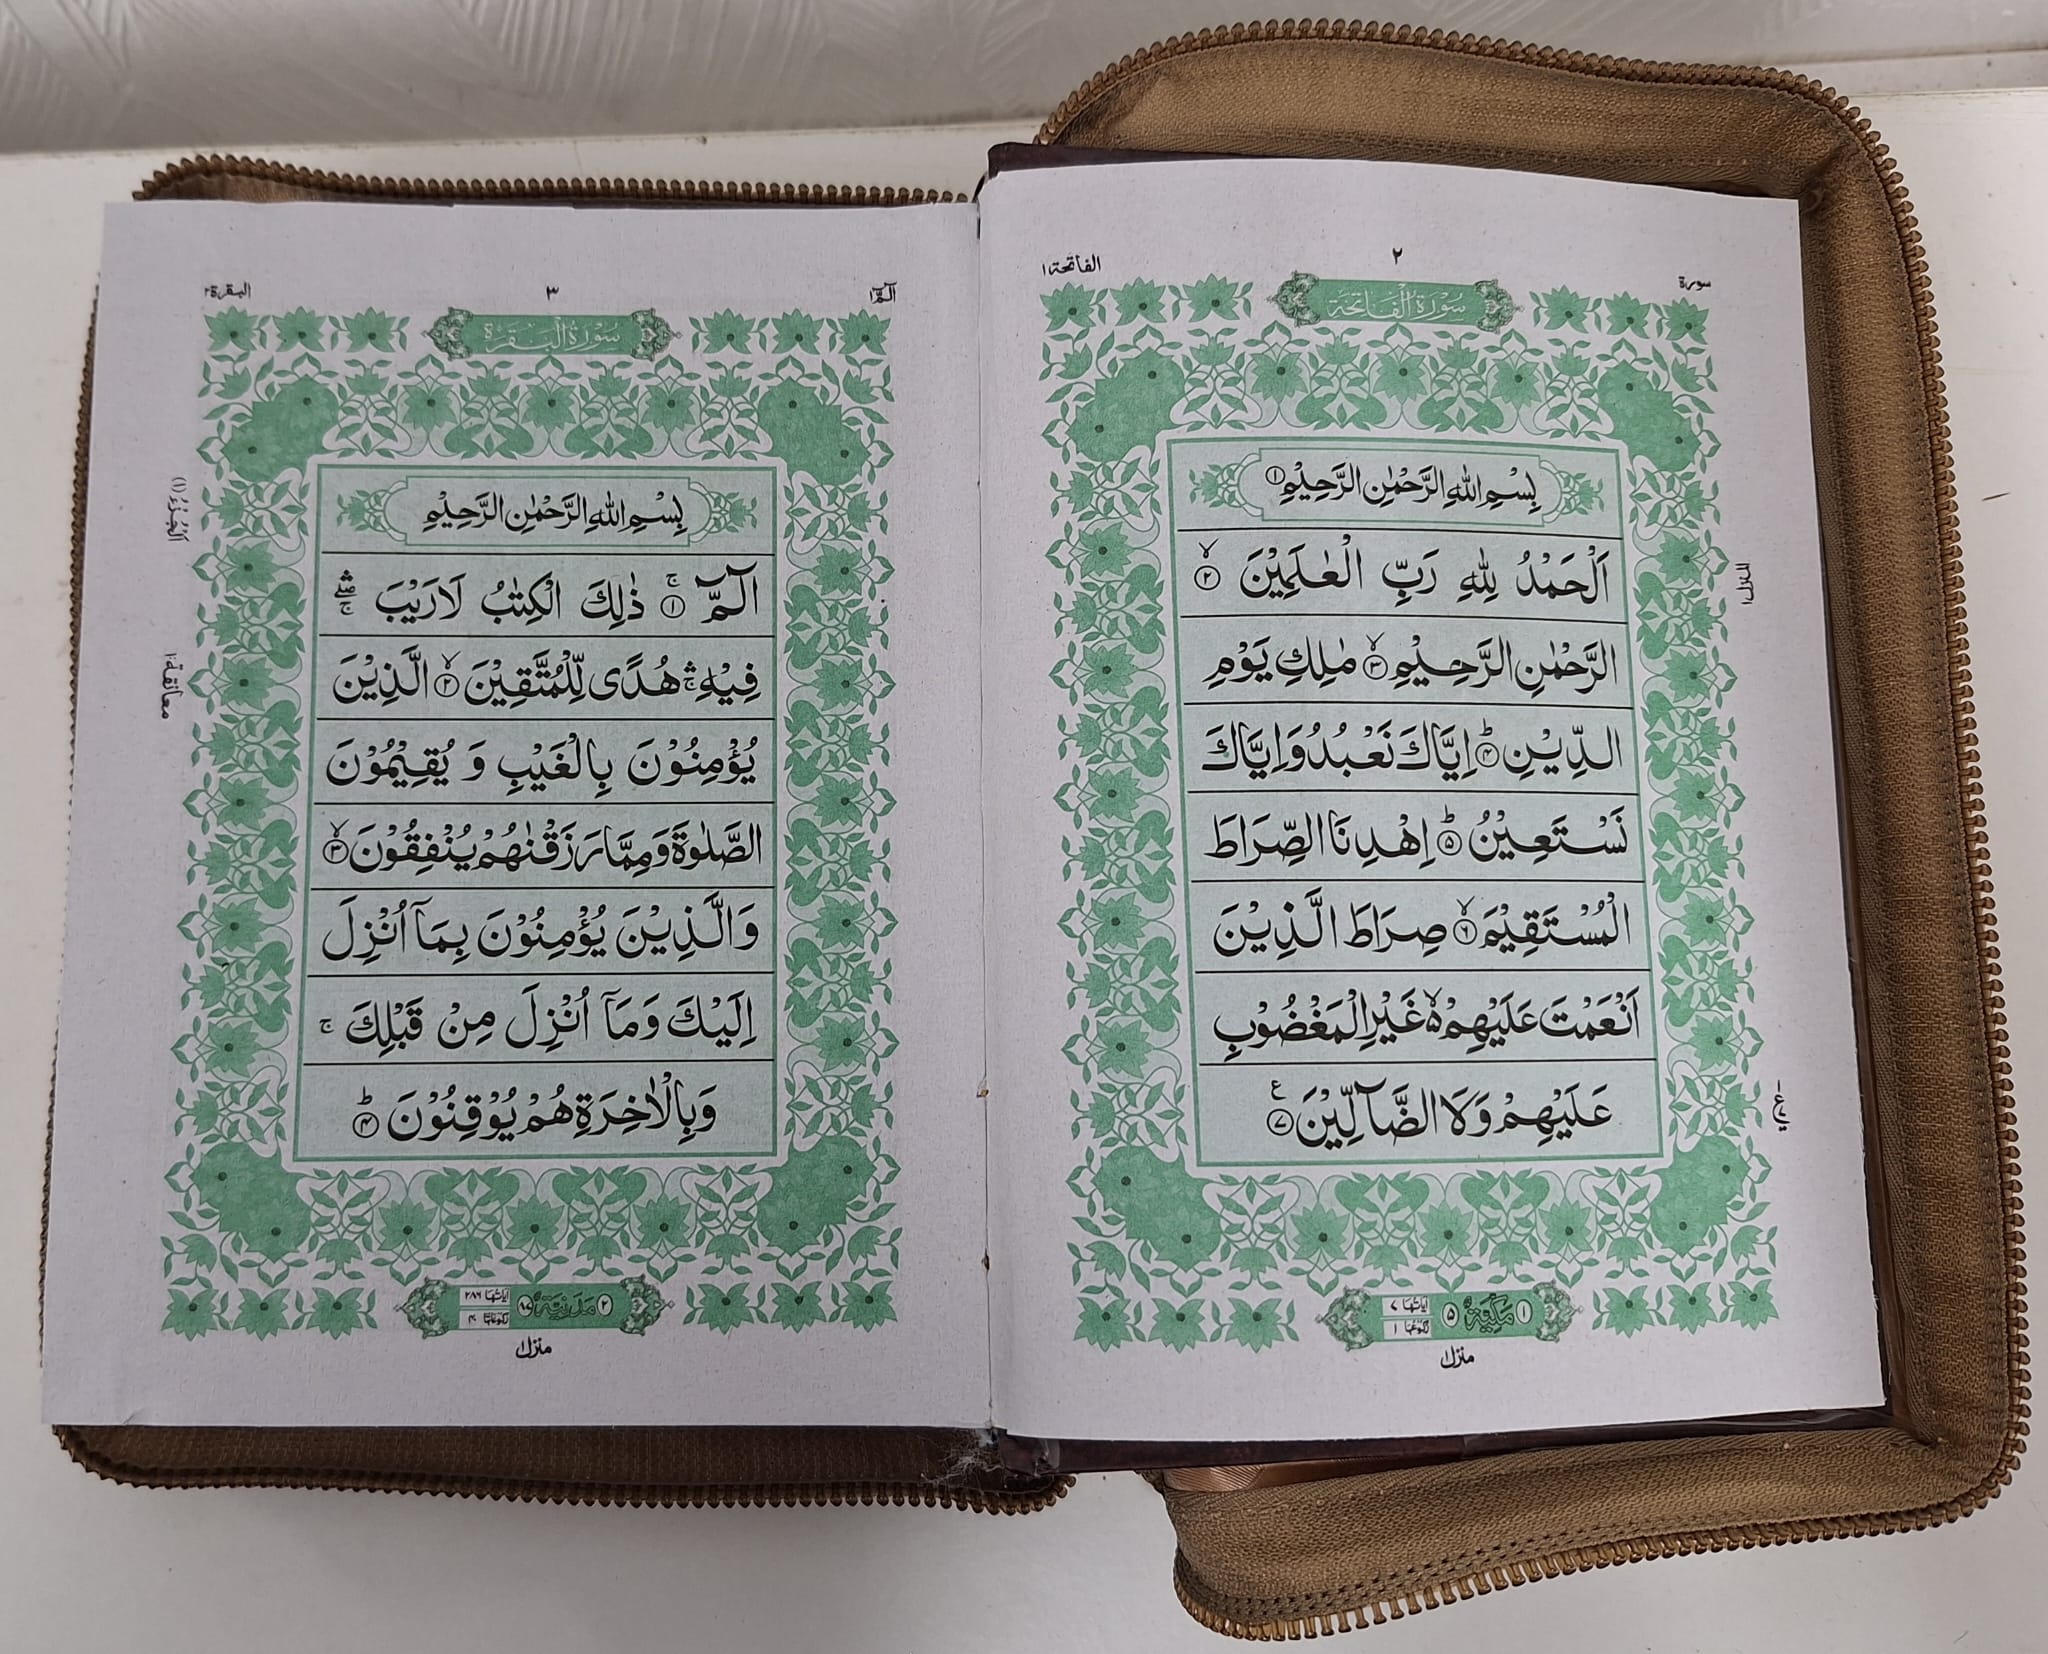 سورة
٢
الفاتحة ١
سُوْرَةُ الْفَاتِحَةِ
بِسْمِ اللّٰهِ الرَّحْمٰنِ الرَّحِيْمِ ①
اَلْحَمْدُ لِلّٰهِ رَبِّ الْعٰلَمِيْنَ ۙ②
الرَّحْمٰنِ الرَّحِيْمِ ۙ③ مٰلِكِ يَوْمِ
الدِّيْنِ ؕ④ اِيَّاكَ نَعْبُدُ وَاِيَّاكَ
نَسْتَعِيْنُ ؕ⑤ اِهْدِنَا الصِّرَاطَ
الْمُسْتَقِيْمَ ۙ⑥ صِرَاطَ الَّذِيْنَ
اَنْعَمْتَ عَلَيْهِمْ ۙ۬ غَيْرِ الْمَغْضُوْبِ
عَلَيْهِمْ وَلَا الضَّآلِّيْنَ ⑦ ع
المنزل ١
١ مَكِّيَّةٌ ٥
اٰيَاتُهَا ٧
رُكُوْعُهَا ١
منزل ١
الٓمّٓ ١
٣
البقرة ٢
سُوْرَةُ الْبَقَرَةِ
بِسْمِ اللّٰهِ الرَّحْمٰنِ الرَّحِيْمِ
الٓمّٓ ۚ① ذٰلِكَ الْكِتٰبُ لَا رَيْبَ ۛۖۚ
فِيْهِ ۛۚ هُدًى لِّلْمُتَّقِيْنَ ۙ② الَّذِيْنَ
يُؤْمِنُوْنَ بِالْغَيْبِ وَ يُقِيْمُوْنَ
الصَّلٰوةَ وَمِمَّا رَزَقْنٰهُمْ يُنْفِقُوْنَ ۙ③
وَالَّذِيْنَ يُؤْمِنُوْنَ بِمَآ اُنْزِلَ
اِلَيْكَ وَمَآ اُنْزِلَ مِنْ قَبْلِكَ ۚ
وَبِالْاٰخِرَةِ هُمْ يُوْقِنُوْنَ ؕ④
اَلْجُزْءُ (١)
معانقة ١
٢ مَدَنِيَّةٌ ٨٧
اٰيَاتُهَا ٢٨٦
رُكُوْعُهَا ٤٠
منزل ١